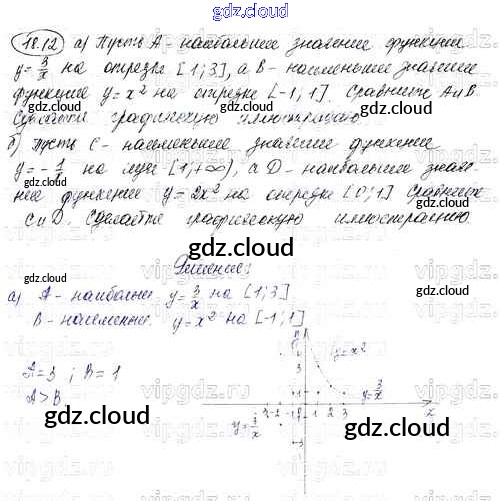 gdz.cloud
18.12 а) Пусть А - наибольшее значение функции
y = 3/x на отрезке [1;3], а В - наименьшее значение
функции y = x² на отрезке [-1,1]. Сравните А и В.
Сделайте графическую иллюстрацию
б) Пусть С - наименьшее значение функции
y = -1/x на луче [1,+∞), а D - наибольшее значе-
ние функции y = 2x² на отрезке [0;1] Сравните
С и D. Сделайте графическую иллюстрацию.
gdz.cloud
Решение:
а) А - наибольш. y = 3/x на [1;3]
В - наименьш. y = x² на [-1;1]
А = 3 ; В = 1
А > В
y = x²
y = 3/x
-3 -2 -1 0 1 2 3 x
y = 3/x
gdz.cloud